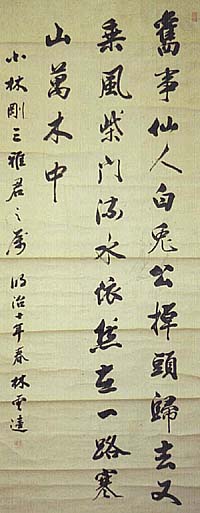 舊事仙人白兔公掉頭歸去又
乗風柴門流水依然在一路寒
山萬木中
小林剛三雅君之属 明治十年春 林雲逵